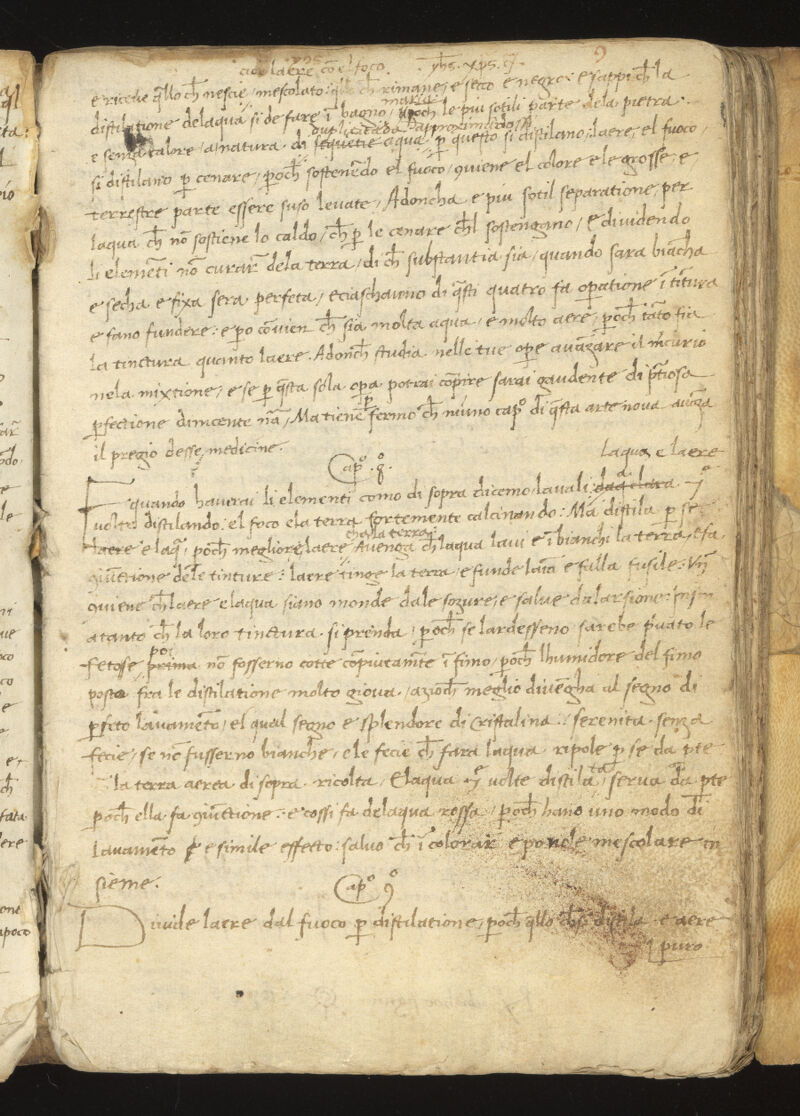 cioe laere con el foco. yhs. xps. 9
e riceue q̃llo ch̃ nescie mescolato: ch̃ rimane, e secco e negro: e sappi ch̃ la
distilatione delaqua si de fare ĩ bagno maria, poch̃ le piu sotili parte dela pietra.
e senza calore, a natura di aqua, p questo si distilano, laere, el fuoco,
si distilano p cenare, poch̃ sostenendo el fuoco, 9uiene el colore e le grosse, e
terrestre parte essere suso leuate, Adoncha e piu sotil separatione, per
laqua ch̃ nõ sostiene lo caldo, ch̃ p le cenare ch̃l sostengano, e diuidendo
li elemẽti nõ curar̃ dela terra, di ch̃ substantia sia, quando sara biãcha
e secha e fixa sera perfeta, e ciaschauno di q̃sti quatro fa opatione ĩ tĩtura
e fano fundere: e po conuien ch̃ sia molta aqua, e molto aere, poch̃ tãto fia
la tinctura quanto laere. Adonch̃ studia nelle tue ope auãzare il mercurio
nela mixtione, e se p q̃sta sola opa potrai cõpire sarai gaudente di p̃tiosa
pfectione dimcente nr̃a, Ma tiene p fermo ch̃ niuno capº di q̃sta arte noua auãza
il pregio desse medicine.
Capº. 8.
Laqua e laere
quando hauerai li elementi como di sopra dicemo, lauali 7ª
uolta distilando: el foco e la terra fortemente calcinando: Ma distila p se
laere e laq̃, poch̃ megliore laere, Auenga ch̃ laqua laui e ĩbianchi la terra, e fa
9iũctione dele tinture: laere tinge la terra, e funde laĩa e falla fusile: Vñ
9uiene ch̃ laere e laqua siano monde dale sozure, e salue dalarsione:
a tanto ch̃ la loro tinctura si prenda, poch̃ se lardesseno sarebe puato le
fetosse poi nõ fosserno cotte cõpiutamẽte ĩ fimo, poch̃ lhumidore del fimo
posta fra le distilatione molto gioua, acioch̃ meglio diuẽgha al segno di
pfeto lauamẽto, el qual segno e splendore di cristalina serenita senza
fecie, se nõ fusserno bianche, e le fecie ch̃ fara laqua ripole p se da pte
la terra aerea di sopra ricolta, E laqua 7ª uolte distilata, serua da pte
poch̃ ella fa 9iũctione: e cossi fa delaqua rossa, poch̃ hano uno modo di
lauamẽto e simile effecto: saluo ch̃ ĩ colorar̃ e ponole mescolare in
sieme.
Capº 9º
Diuide laere dal fuoco p distilatione, poch̃ q̃llo distila e aere
puro